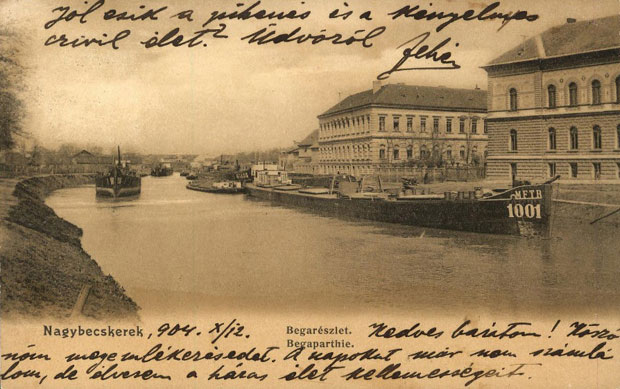 Jól esik a pihenés és a kényelmes
civil élet? Üdvözöl
Fehér
MFTR
1001
Nagybecskerek, 904. X/12.
Begarészlet.
Begaparthie.
Kedves barátom! Köszö
nöm megemlékezésedet. A napokat már nem számlá
lom, de élvezem a házas élet kellemességeit.